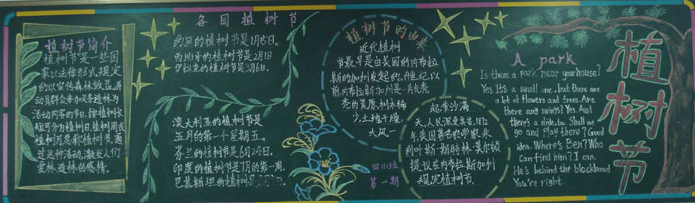 植树节简介
植树节是一些国
家以法律形式规定
的以宣传森林效益,并
动员群众参加造林为
活动内容的节日。按植树长
短可分为植树日,植树周或
植树月,总称植树节。通
过这种活动,激发人们
爱林、造林的感情。
各国植树节
约旦的植树节是1月15日。
西班牙的植树节是2月1日
伊拉克的植树节是3月6日。
澳大利亚的植树节是
五月的第一个星期五。
芬兰的植树节是6月24日。
印度的植树节是7月的第一周。
巴基斯坦的植树
植树节的由来
近代植树
节最早是由美国的内布拉
斯加州发起的。19世纪以
前内布拉斯加州是一片光秃
秃的荒原,树木稀
少土地干燥,
大风一
起黄沙满
天,人民深受其苦。1872
年,美国著名农学家朱
利叶斯·斯特林·莫尔顿
提议在内布拉斯加州
规定植树节,
第一期
A park
Is there a park near your house?
Yes. It's a small one, but there are
a lot of flowers and trees. Are
there any swings? Yes. And
there's a slide, too. Shall we
go and play there? Good
idea. Where's Ben? Who
can find him? I can.
He's behind the blackboard
You're right.
植树节